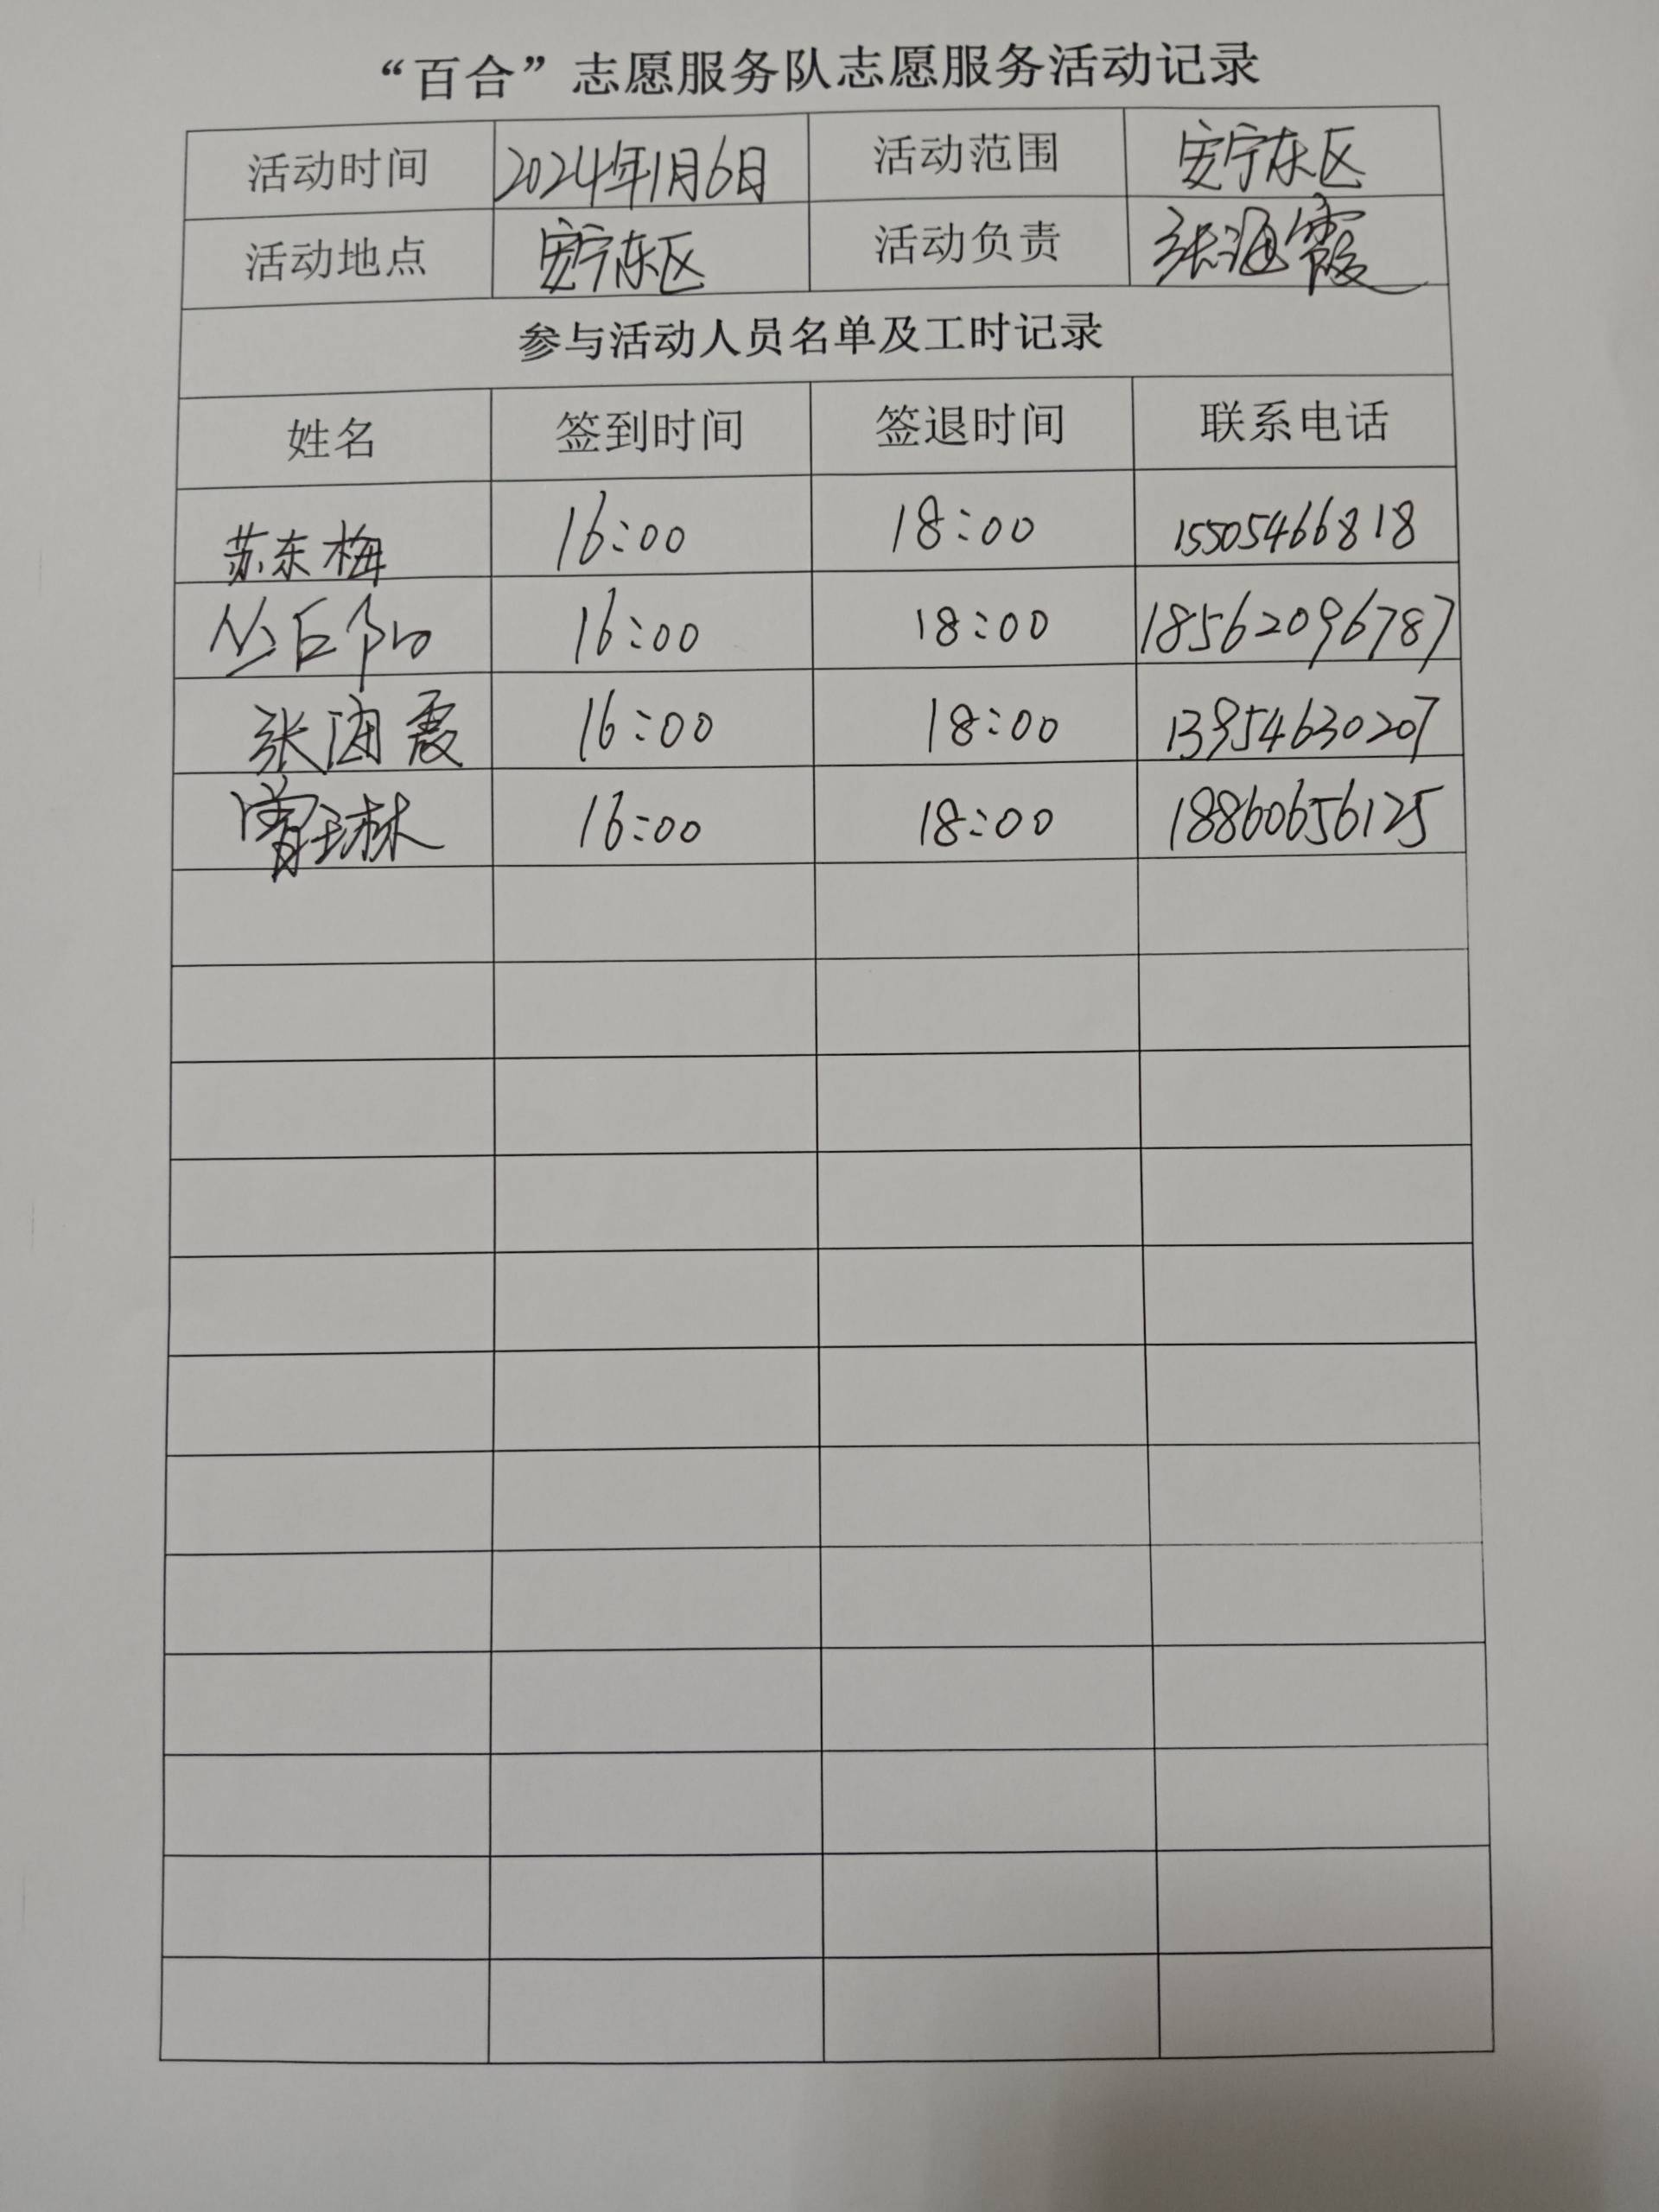 “百合”志愿服务队志愿服务活动记录
活动时间 2024年1月6日 活动范围 安宁东区
活动地点 安宁东区 活动负责 张海霞
参与活动人员名单及工时记录
姓名 签到时间 签退时间 联系电话
苏东梅 16:00 18:00 15505466818
16:00 18:00 18562096787
张海霞 16:00 18:00 13954630207
曾琳 16:00 18:00 18860656125